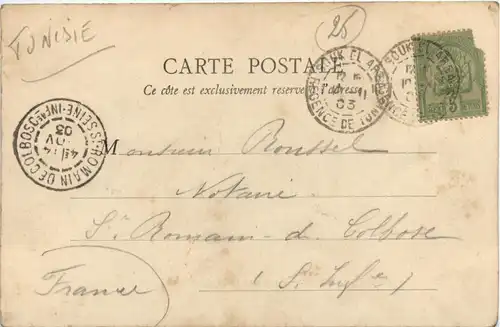 TUNISIE
25
CARTE POSTALE
Ce côté est exclusivement réservé à l'adresse
SOUK EL ARBA
REGENCE DE TUNIS
03
SOUK EL ARBA
ST ROMAIN DE COLBOSC
SEINE-INFRE
03
Monsieur Roussel
Notaire
St Romain-de Colbosc
(S. Infre)
France